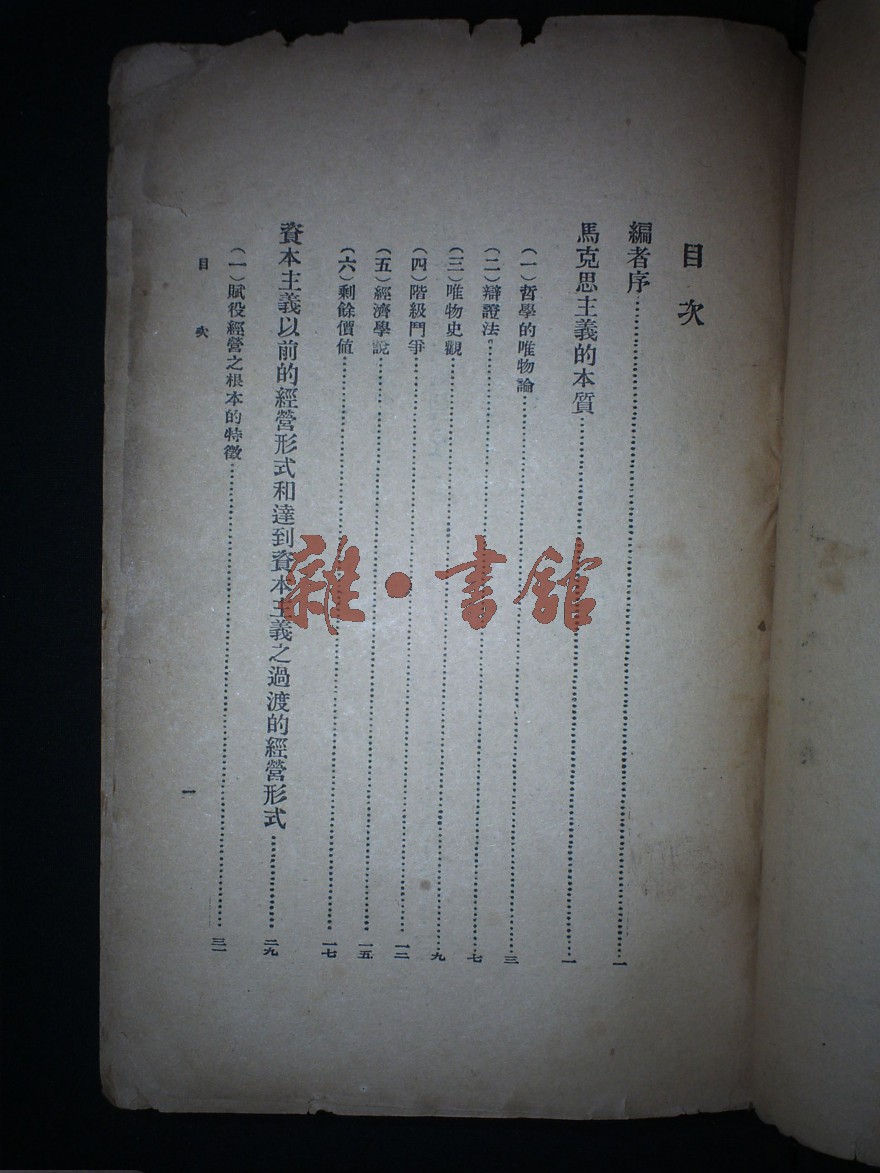 目次
編者序……一
馬克思主義的本質……一
(一)哲學的唯物論……三
(二)辯證法……七
(三)唯物史觀……九
(四)階級鬥爭……一二
(五)經濟學說……一五
(六)剩餘價值……一七
資本主義以前的經營形式和達到資本主義之過渡的經營形式……二九
(一)賦役經營之根本的特徵……三一
目次
一
雜·書館